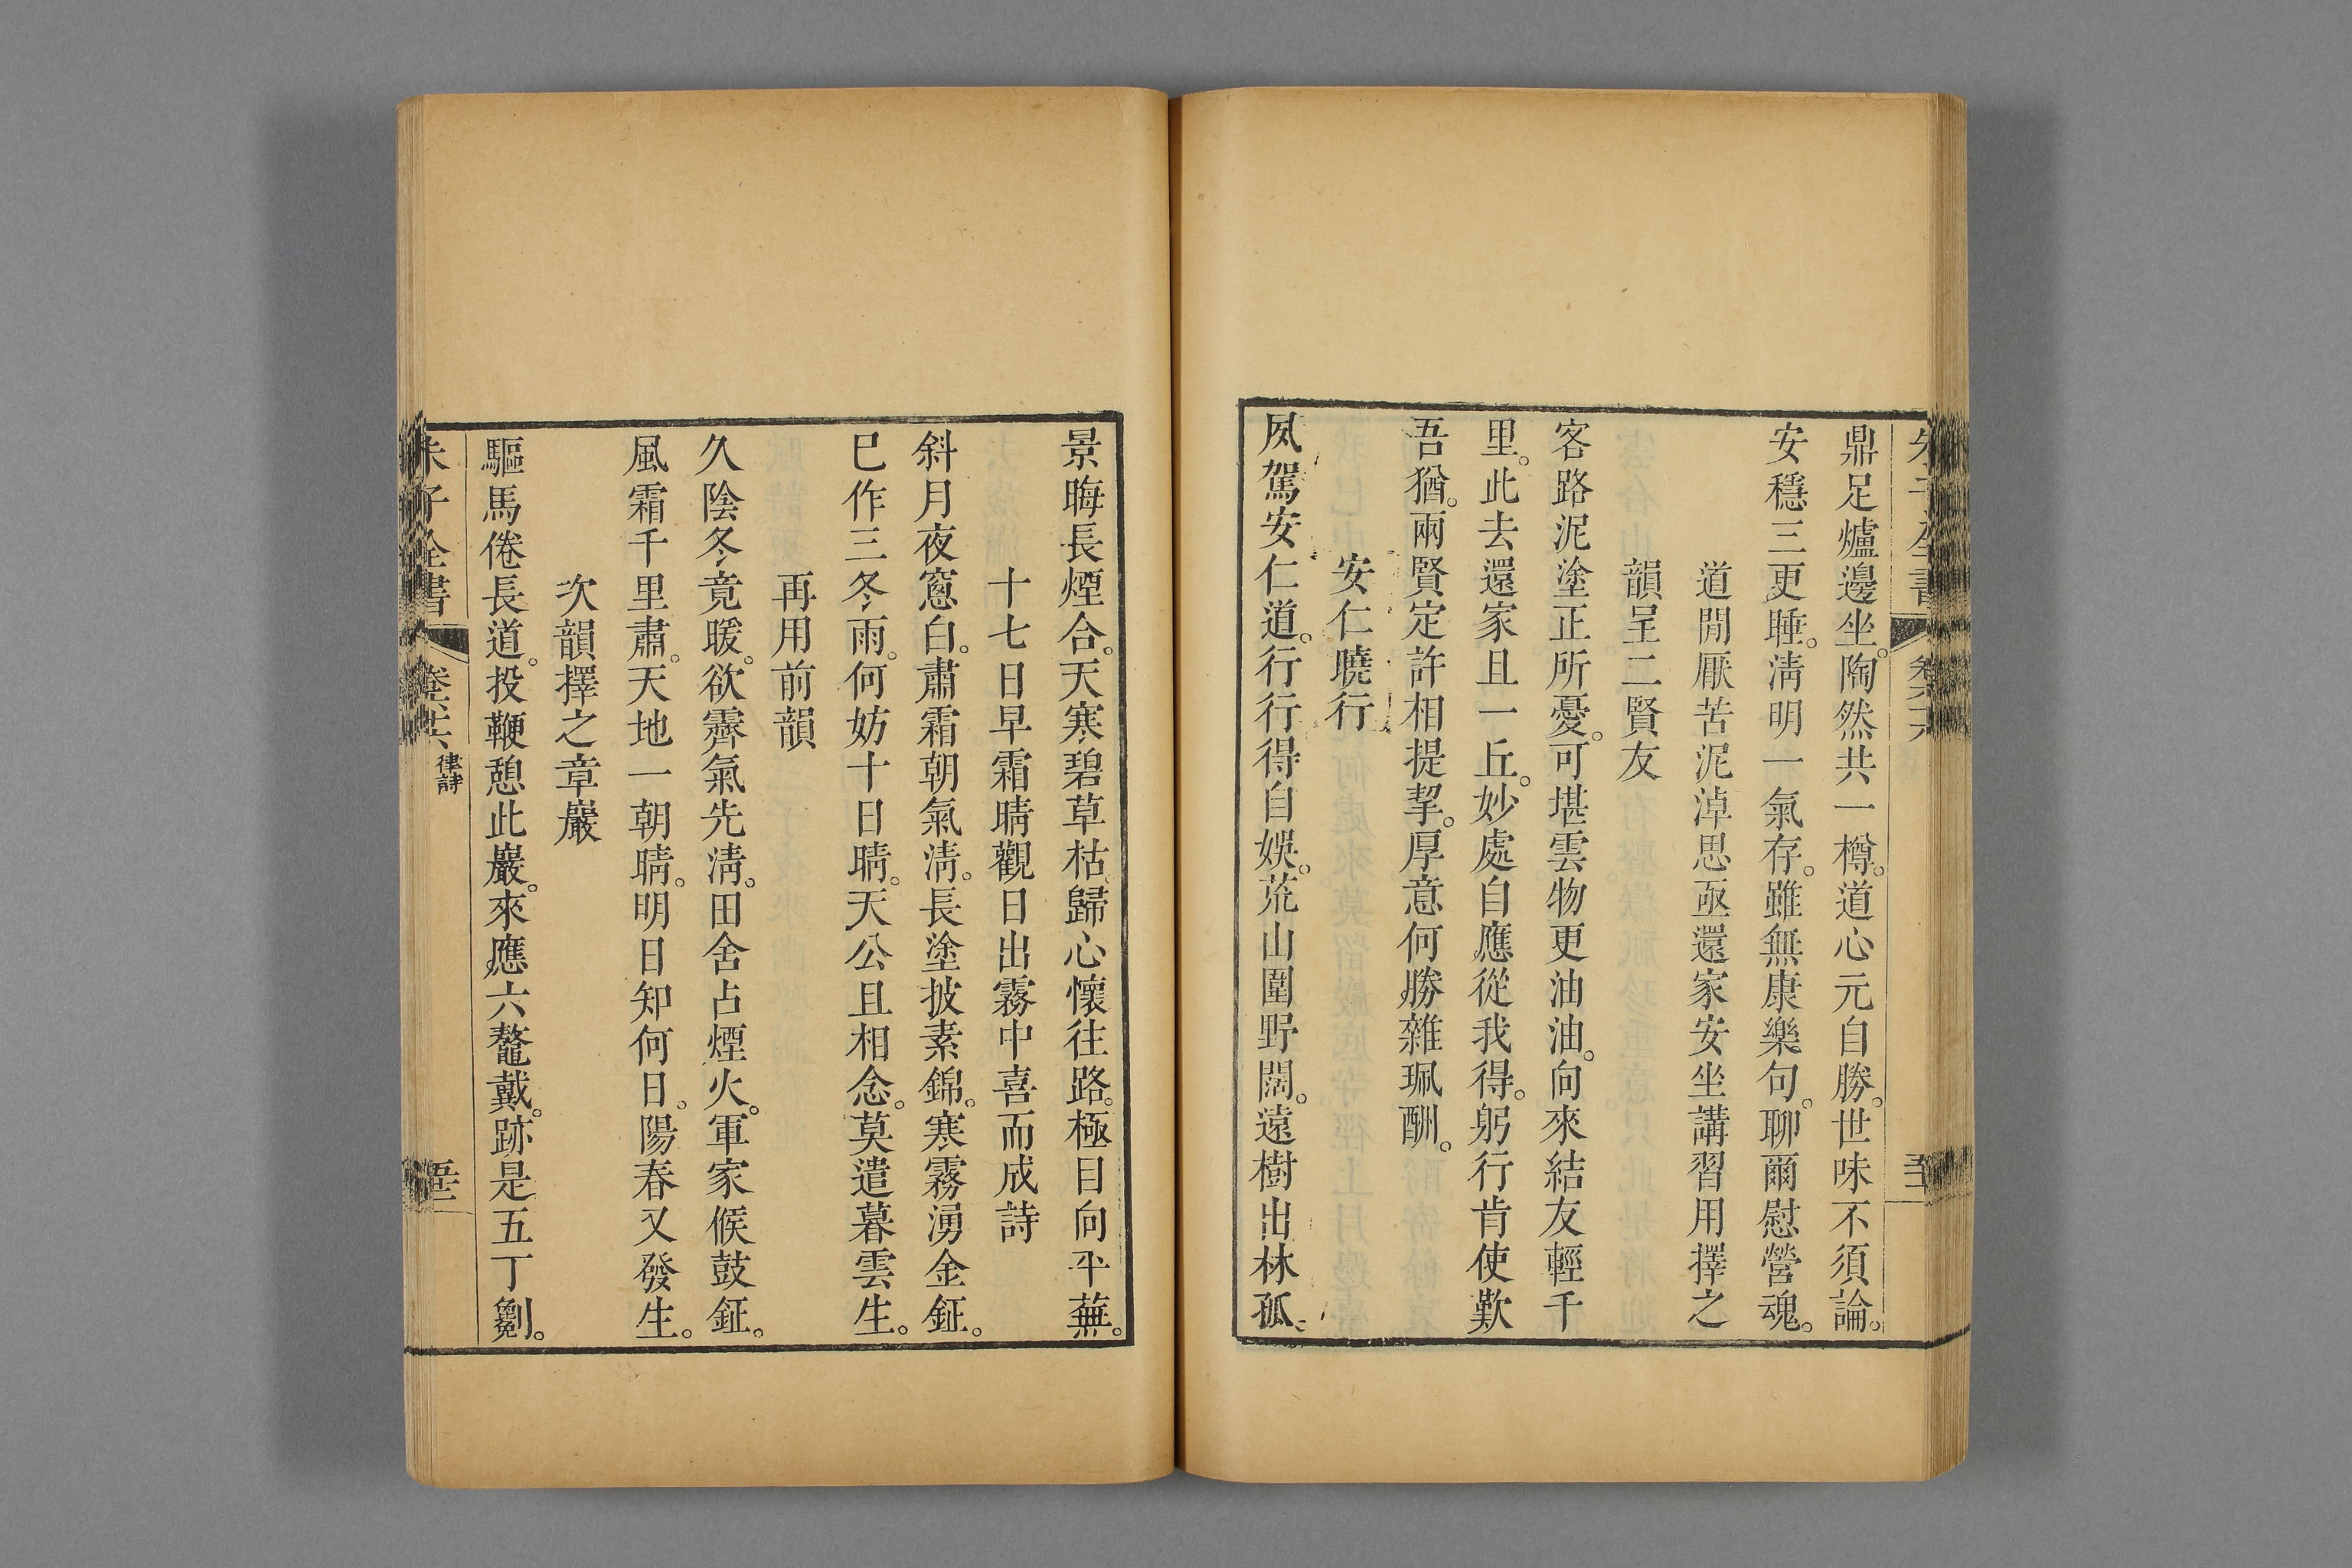 鼎足爐邊坐。陶然共一樽。道心元自勝。世味不須論。
安穩三更睡。淸明一氣存。雖無康樂句。聊爾慰營魂。
道閒厭苦泥淖思亟還家安坐講習用擇之
韻呈二賢友
客路泥塗正所憂。可堪雲物更油油。向來結友輕千
里。此去還家且一丘。妙處自應從我得。躬行肯使歎
吾猶。兩賢定許相提挈。厚意何勝雜珮酬。
安仁曉行
夙駕安仁道。行行得自娛。荒山圍野闊。遠樹出林孤。
景晦長煙合。天寒碧草枯。歸心懷往路。極目向平蕪。
十七日早霜晴觀日出霧中喜而成詩
斜月夜窻白。肅霜朝氣淸。長塗披素錦。寒霧湧金鉦。
巳作三冬雨。何妨十日晴。天公且相念。莫遣暮雲生。
再用前韻
久陰冬竟暖。欲霽氣先淸。田舍占煙火。軍家候鼓鉦。
風霜千里肅。天地一朝晴。明日知何日。陽春又發生。
次韻擇之章巖
驅馬倦長道。投鞭憩此巖。來應六鼇戴。跡是五丁劖。
朱子全書
卷六十六
律詩